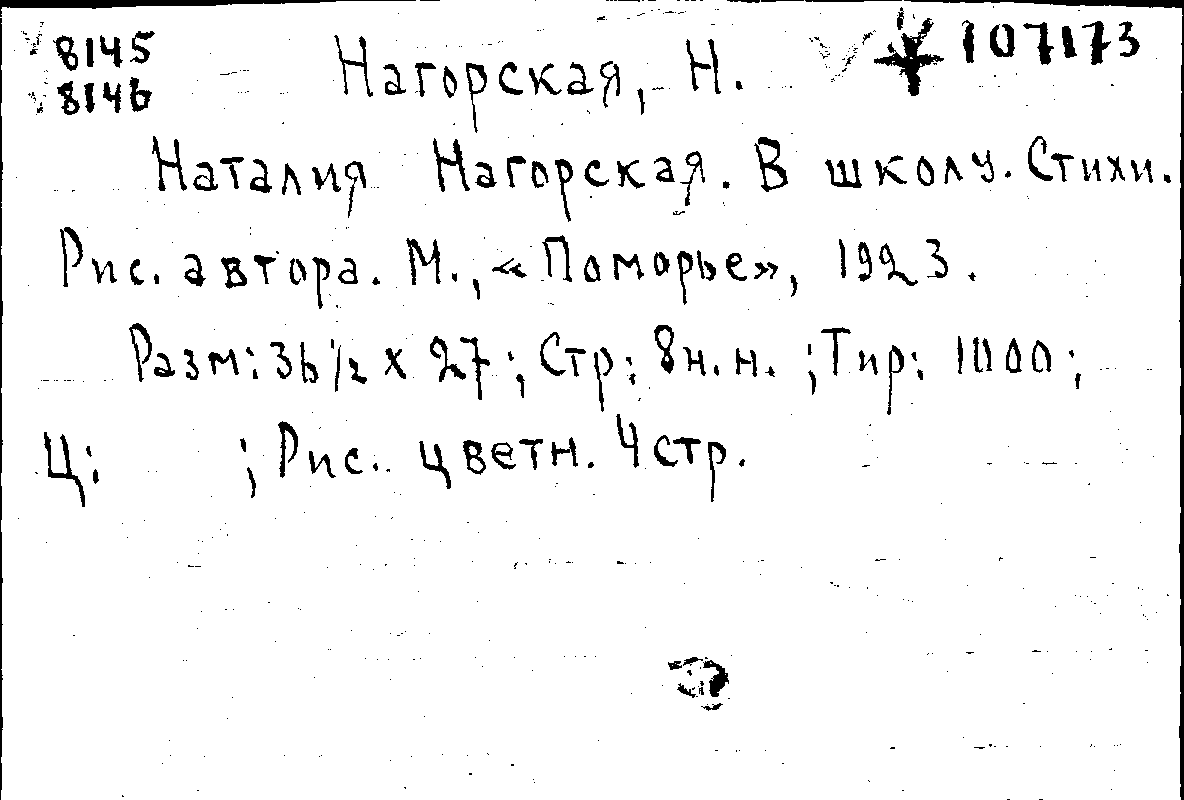 8145
8146
Нагорская, Н.
107173
Наталия Нагорская. В школу. Стихи.
Рис. автора. М., «Поморье», 1923.
Разм: 36 1/2 x 27; Стр: 8 н. н. ; Тир: 1000;
Ц: ; Рис. цветн. 4 стр.